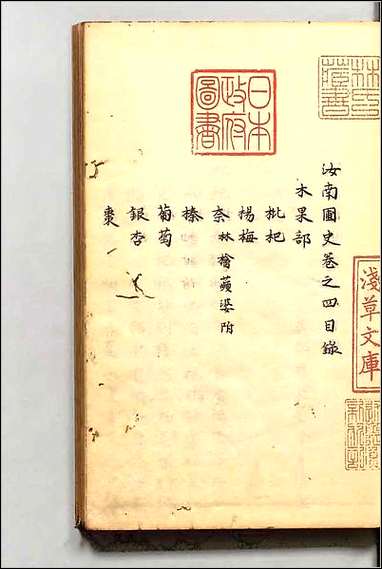 林氏藏書
淺草文庫
日本政府圖書
汝南圃史卷之四目錄
木果部
枇杷
楊梅
奈林檎蘋婆附
榛
葡萄
銀杏
棗